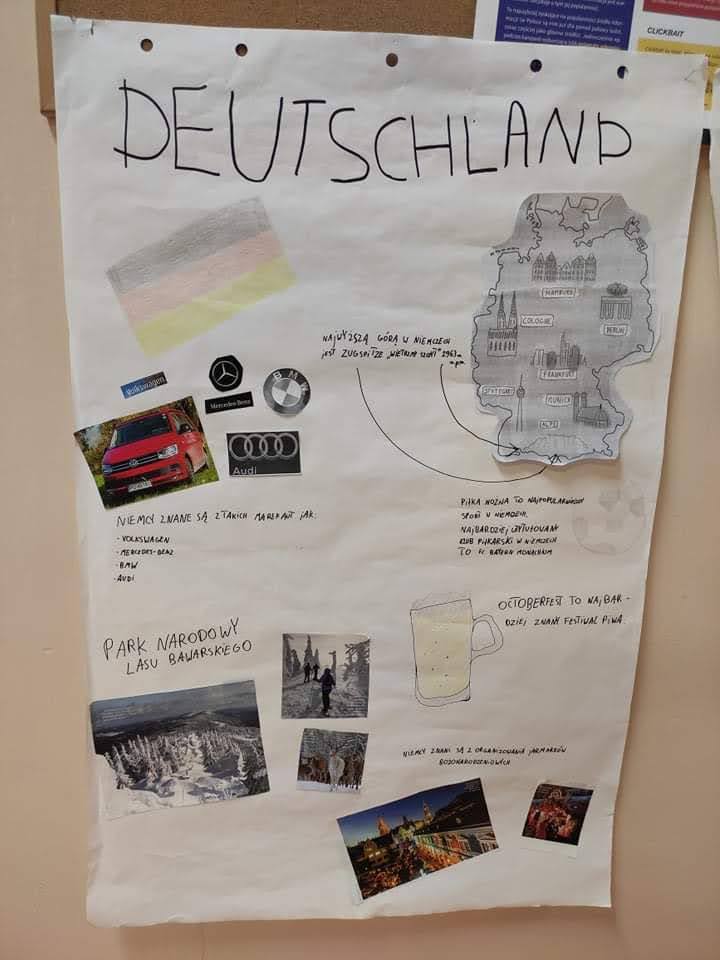 CLICKBAIT
DEUTSCHLAND
HAMBURG
COLOGNE
BERLIN
FRANKFURT
STUTTGART
MUNICH
ALPS
NAJWYŻSZĄ GÓRĄ W NIEMCZECH
jEST ZUGSPITZE
Volkswagen
Mercedes-Benz
BMW
Audi
NIEMCY ZNANE SĄ Z TAKICH MAREK AUT JAK:
- VOLKSWAGEN
- MERCEDES-BENZ
- BMW
- AUDI
PIŁKA NOŻNA TO NAJPOPULARNIEJSZY
SPORT W NIEMCZECH.
NAJBARDZIEJ UTYTUŁOWANY
KLUB PIŁKARSKI W NIEMCZECH
TO FC BAYERN MONACHIUM
OCTOBERFEST TO NAJBAR -
DZIEJ ZNANY FESTIWAL PIWA.
PARK NARODOWY
LASU BAWARSKIEGO
NIEMCY ZNANI SĄ Z ORGANIZOWANIA JARMARKÓW
BOŻONARODZENIOWYCH